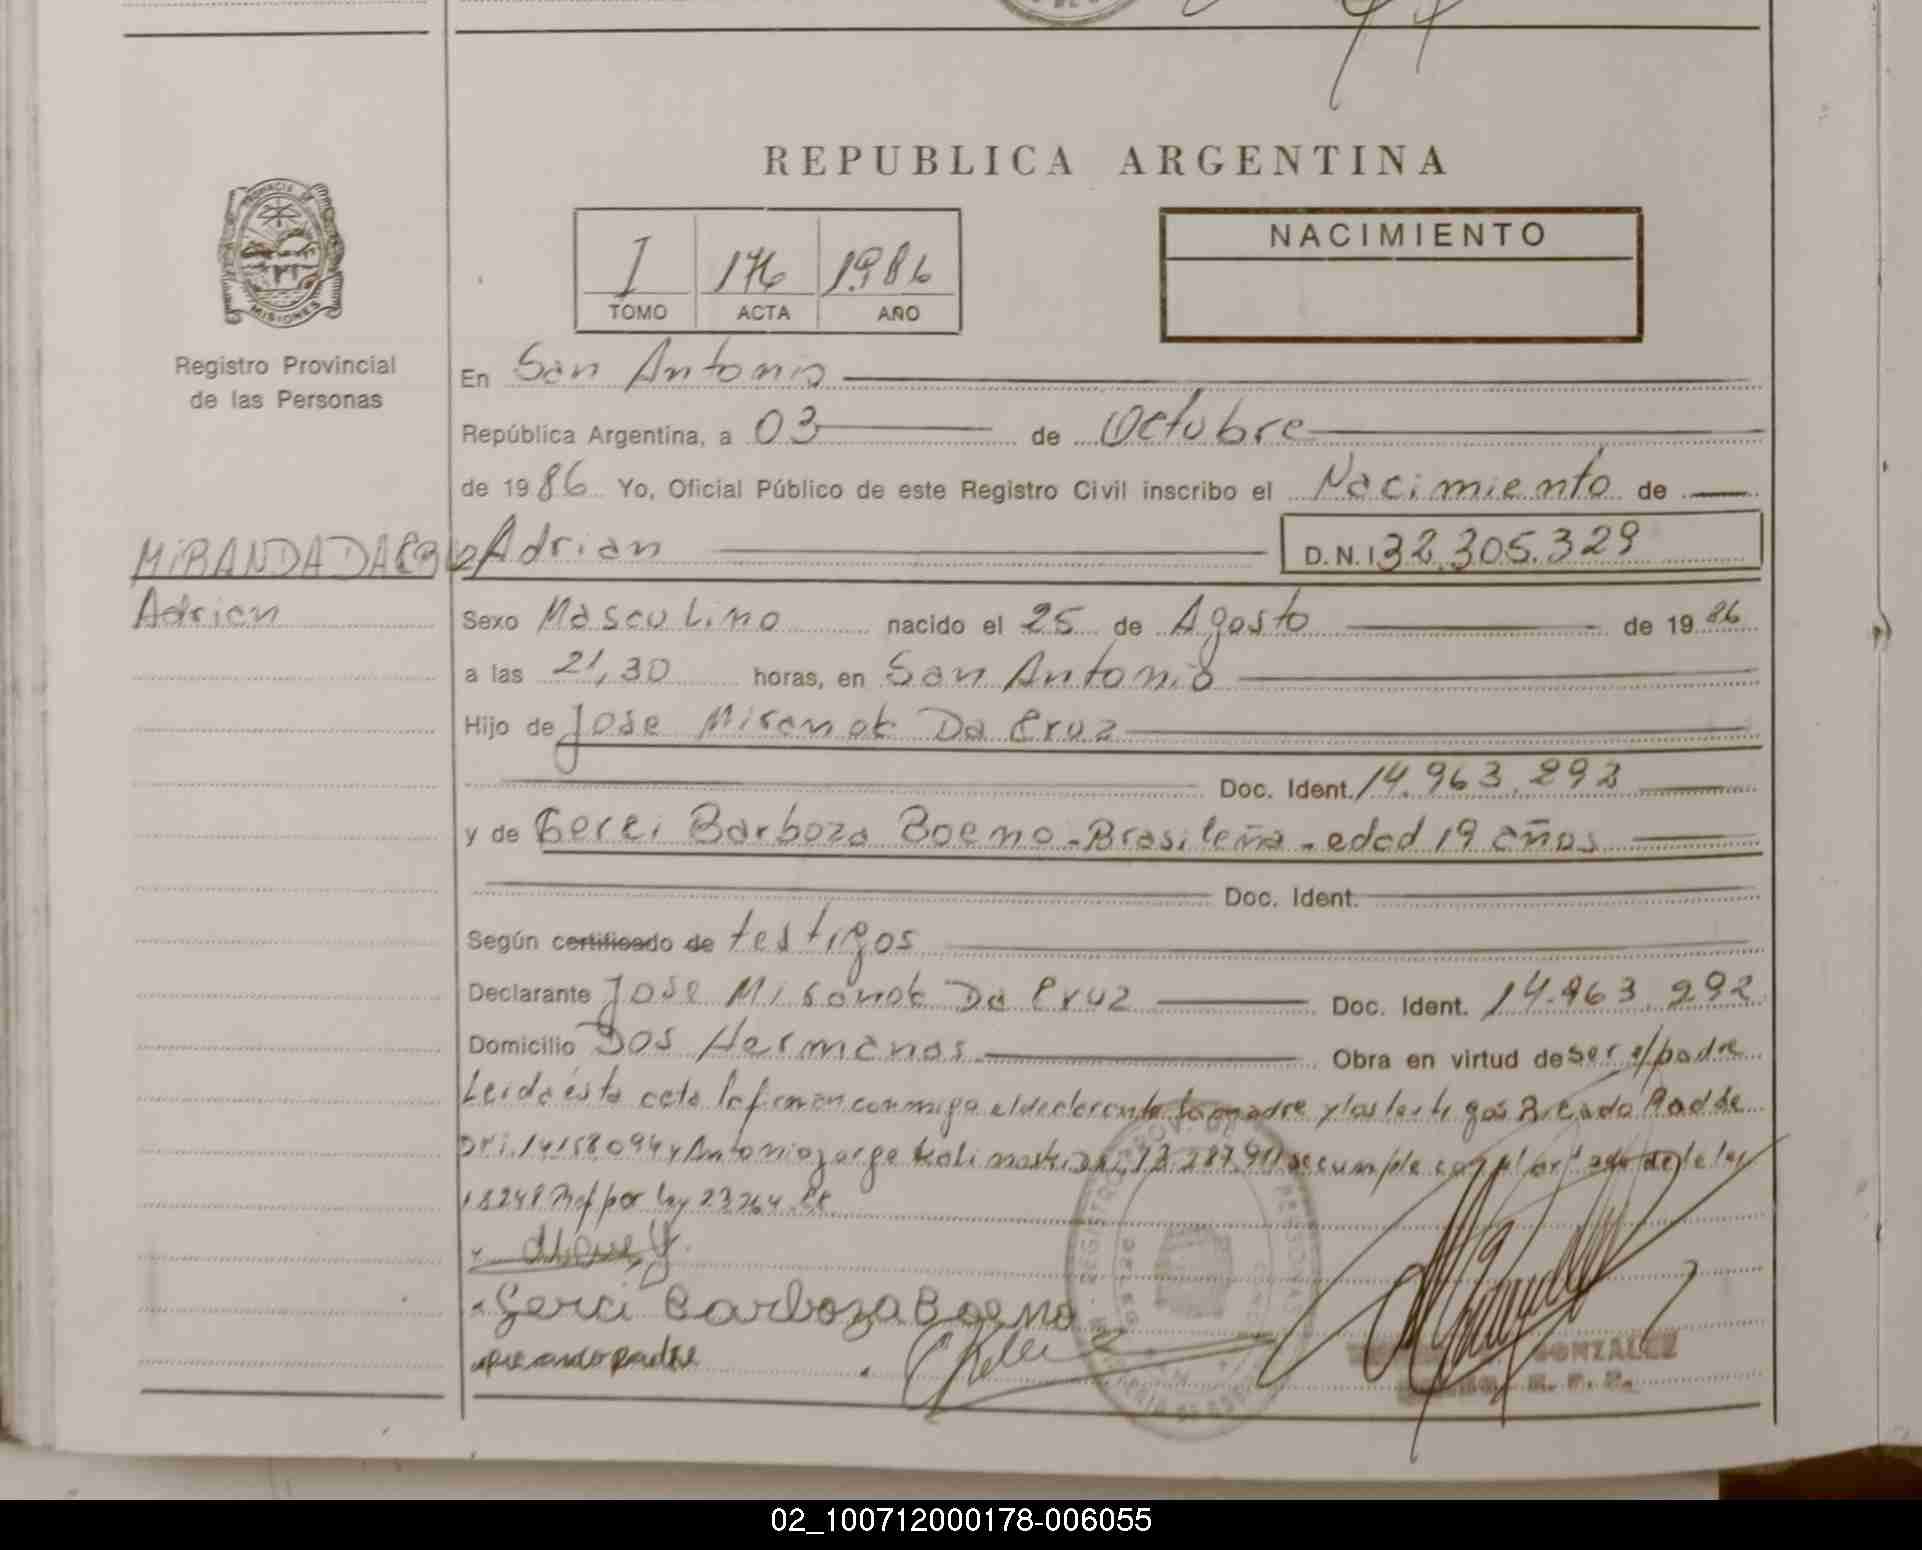 REPUBLICA ARGENTINA
I 176 1986
TOMO ACTA AÑO
NACIMIENTO
MISIONES
Registro Provincial
de las Personas
En San Antonio
República Argentina, a 03 de Octubre
de 1986 Yo, Oficial Público de este Registro Civil inscribo el Nacimiento de
MIRANDA DA CRUZ Adrian D.N.I 32.305.329
Adrian
Sexo Masculino nacido el 25 de Agosto de 1986
a las 21,30 horas, en San Antonio
Hijo de Jose Miranda Da Cruz
Doc. Ident. 14.963.292
y de Gerci Barboza Boeno - Brasileña - edad 19 años
Doc. Ident.
Según certificado de testigos
Declarante Jose Miranda Da Cruz Doc. Ident. 14.963.292
Domicilio Dos Hermanas Obra en virtud de ser el padre
Leida ésta acta la firman conmigo el declarante la madre y los testigos
DNI. 14158094 y Antonio Jorge se cumple con
18248 Mof por ley 23264
Gerci Barboza Boeno
GONZALEZ
02_100712000178-006055